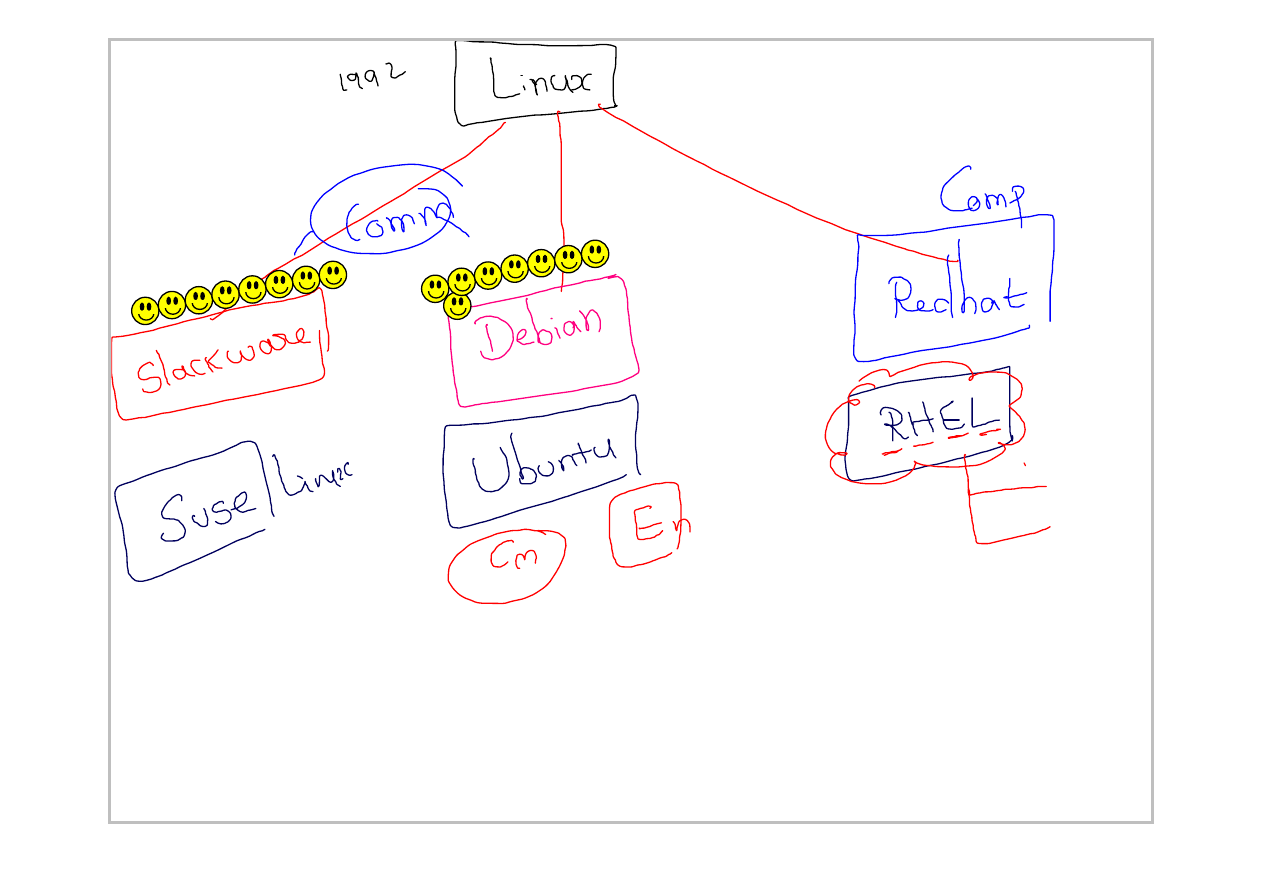 1992
Linux
Comm
Comp
Slackware
Debian
Redhat
Suse Linux
Ubuntu
RHEL
Cm
En